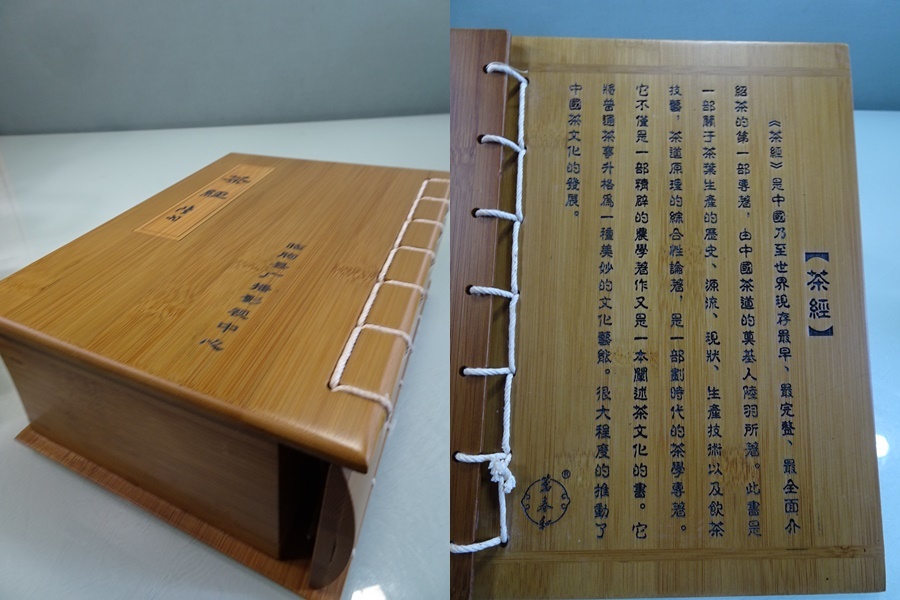 茶經
臨朐县广播影視中心
【茶經】
《茶經》是中國乃至世界現存最早、最完整、最全面介
紹茶的第一部專著，由中國茶道的奠基人陸羽所著。此書是
一部關于茶葉生產的歷史、源流、現狀、生產技術以及飲茶
技藝，茶道原理的綜合性論著，是一部劃時代的茶學專著。
它不僅是一部精辟的農學著作又是一本闡述茶文化的書。它
將普通茶事升格爲一種美妙的文化藝能。很大程度的推動了
中國茶文化的發展。
萬春和®